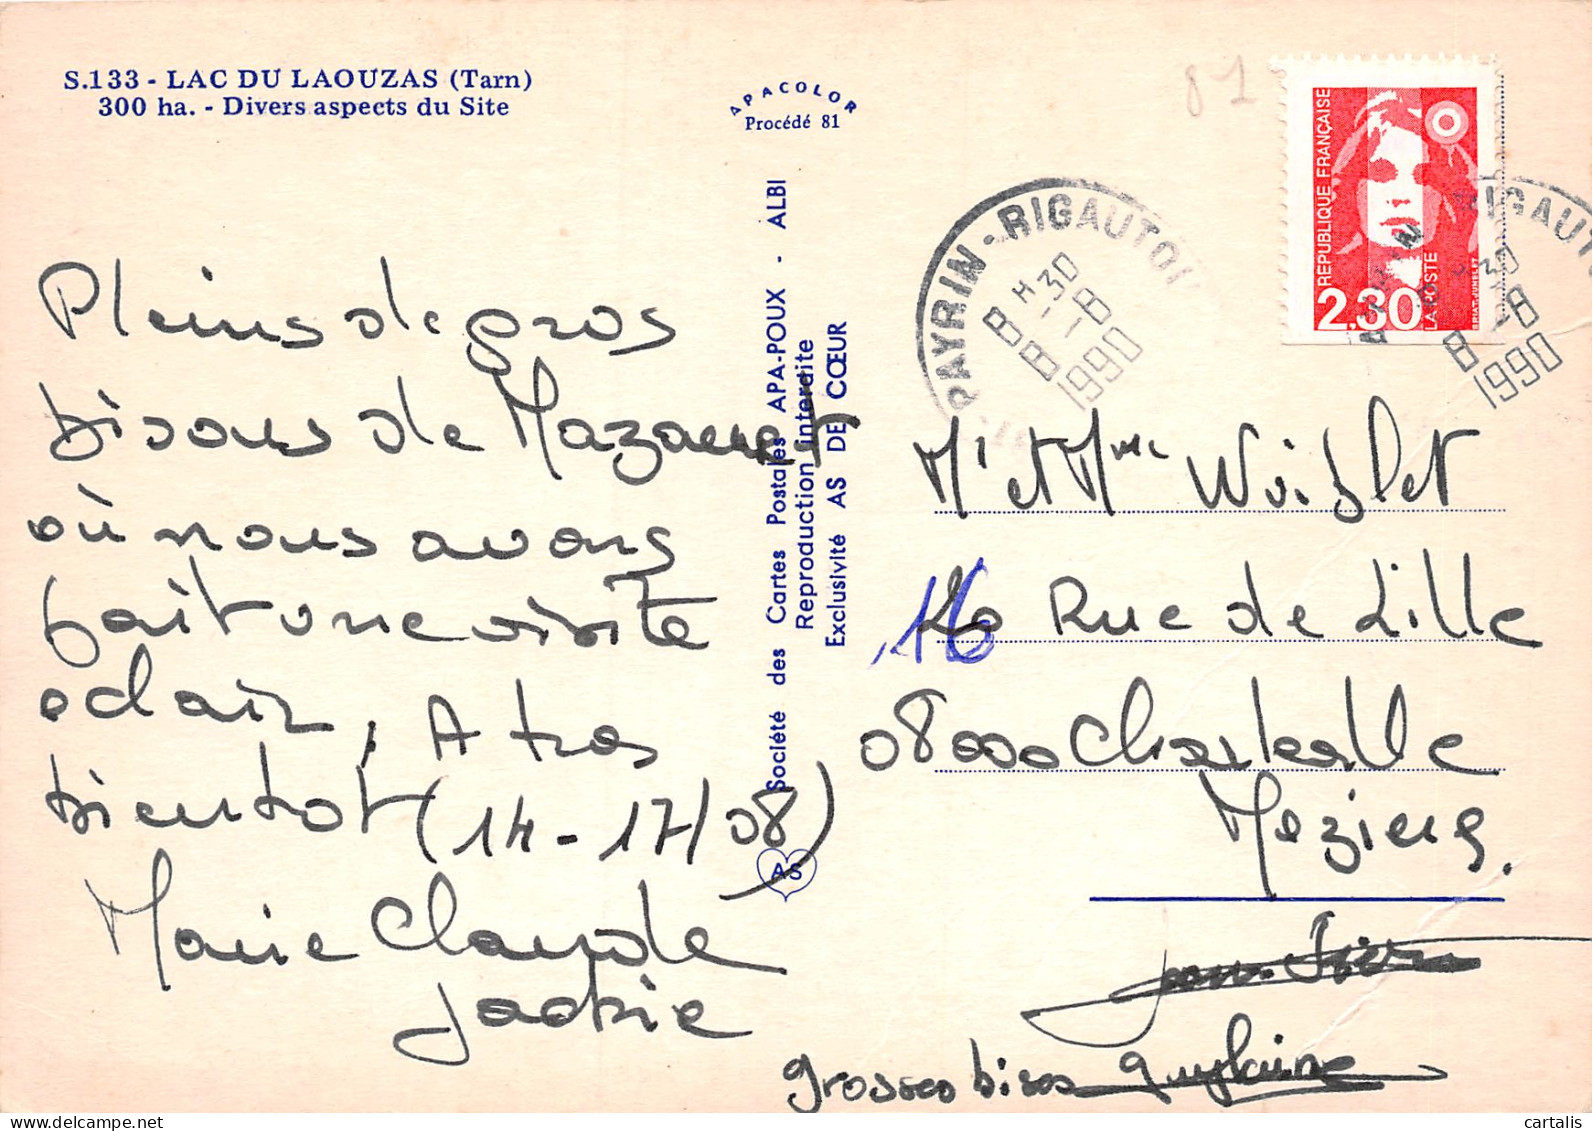 S.133 - LAC DU LAOUZAS (Tarn)
300 ha. - Divers aspects du Site
APACOLOR
Procédé 81
81
RÉPUBLIQUE FRANÇAISE
2,30
LA POSTE
BRIAT-JUMELET
PAYRIN-RIGAUTOU
8 H 30
8 - 8
1990
RIGAUTOU
30
8 -8
1990
Société des Cartes Postales APA-POUX - ALBI
Reproduction interdite
Exclusivité AS DE CŒUR
AS
Pleins de gros
bisous de Mazamet
où nous avons
fait une visite
eclair, A tres
bientot (14-17/08)
Marie Claude
Jackie
Mr et Mme
16 Rue de Lille
08000 Charleville
Mezieres.
grosses bises Guylaine
cartalis